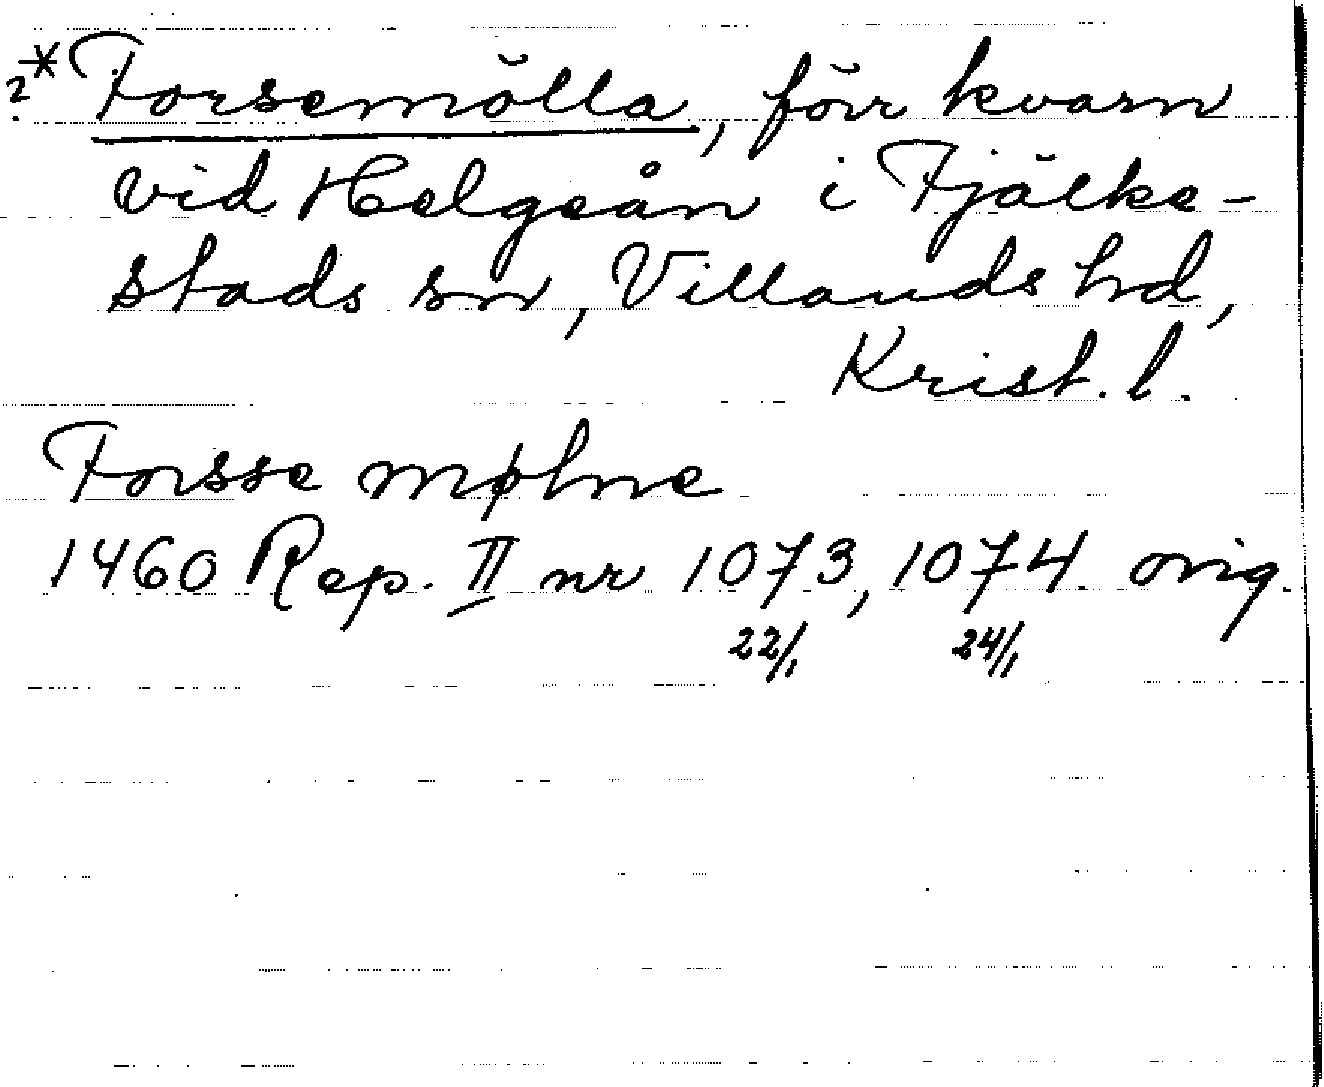 ?* Forsemölla, förr kvarn
vid Helgeån i Fjälke-
stads sn, Villands hd,
Krist. l.
Forsse mølne
1460 Rep. II nr 1073, 1074 orig.
22/1 24/1